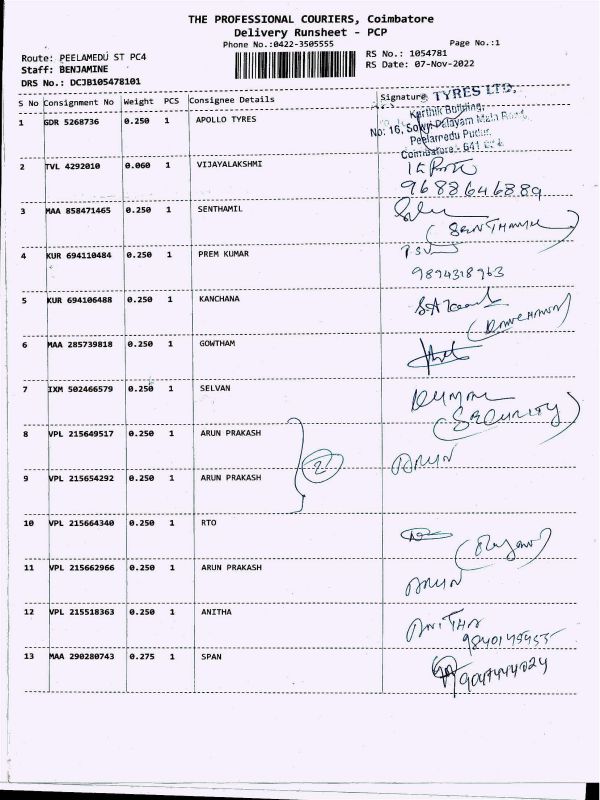 THE PROFESSIONAL COURIERS, Coimbatore
Delivery Runsheet - PCP
Phone No.:0422-3505555 Page No.:1
Route: PEELAMEDU ST PC4 RS No.: 1054781
Staff: BENJAMINE RS Date: 07-Nov-2022
DRS No.: DCJB105478101
S No Consignment No Weight PCS Consignee Details Signature
TYRES LTD,
1 GDR 5268736 0.250 1 APOLLO TYRES
Karthik Building,
No: 16, Palayam Main Road,
Peelamedu Pudur,
Coimbatore - 641
2 TVL 4292010 0.060 1 VIJAYALAKSHMI
9688646889
3 MAA 858471465 0.250 1 SENTHAMIL
4 KUR 694110484 0.250 1 PREM KUMAR
9894318963
5 KUR 694106488 0.250 1 KANCHANA
6 MAA 285739818 0.250 1 GOWTHAM
7 IXM 502466579 0.250 1 SELVAN
(SECURITY)
8 VPL 215649517 0.250 1 ARUN PRAKASH
2 ARUN
9 VPL 215654292 0.250 1 ARUN PRAKASH
10 VPL 215664340 0.250 1 RTO
11 VPL 215662966 0.250 1 ARUN PRAKASH
ARUN
12 VPL 215518363 0.250 1 ANITHA
ANITHA
13 MAA 290280743 0.275 1 SPAN